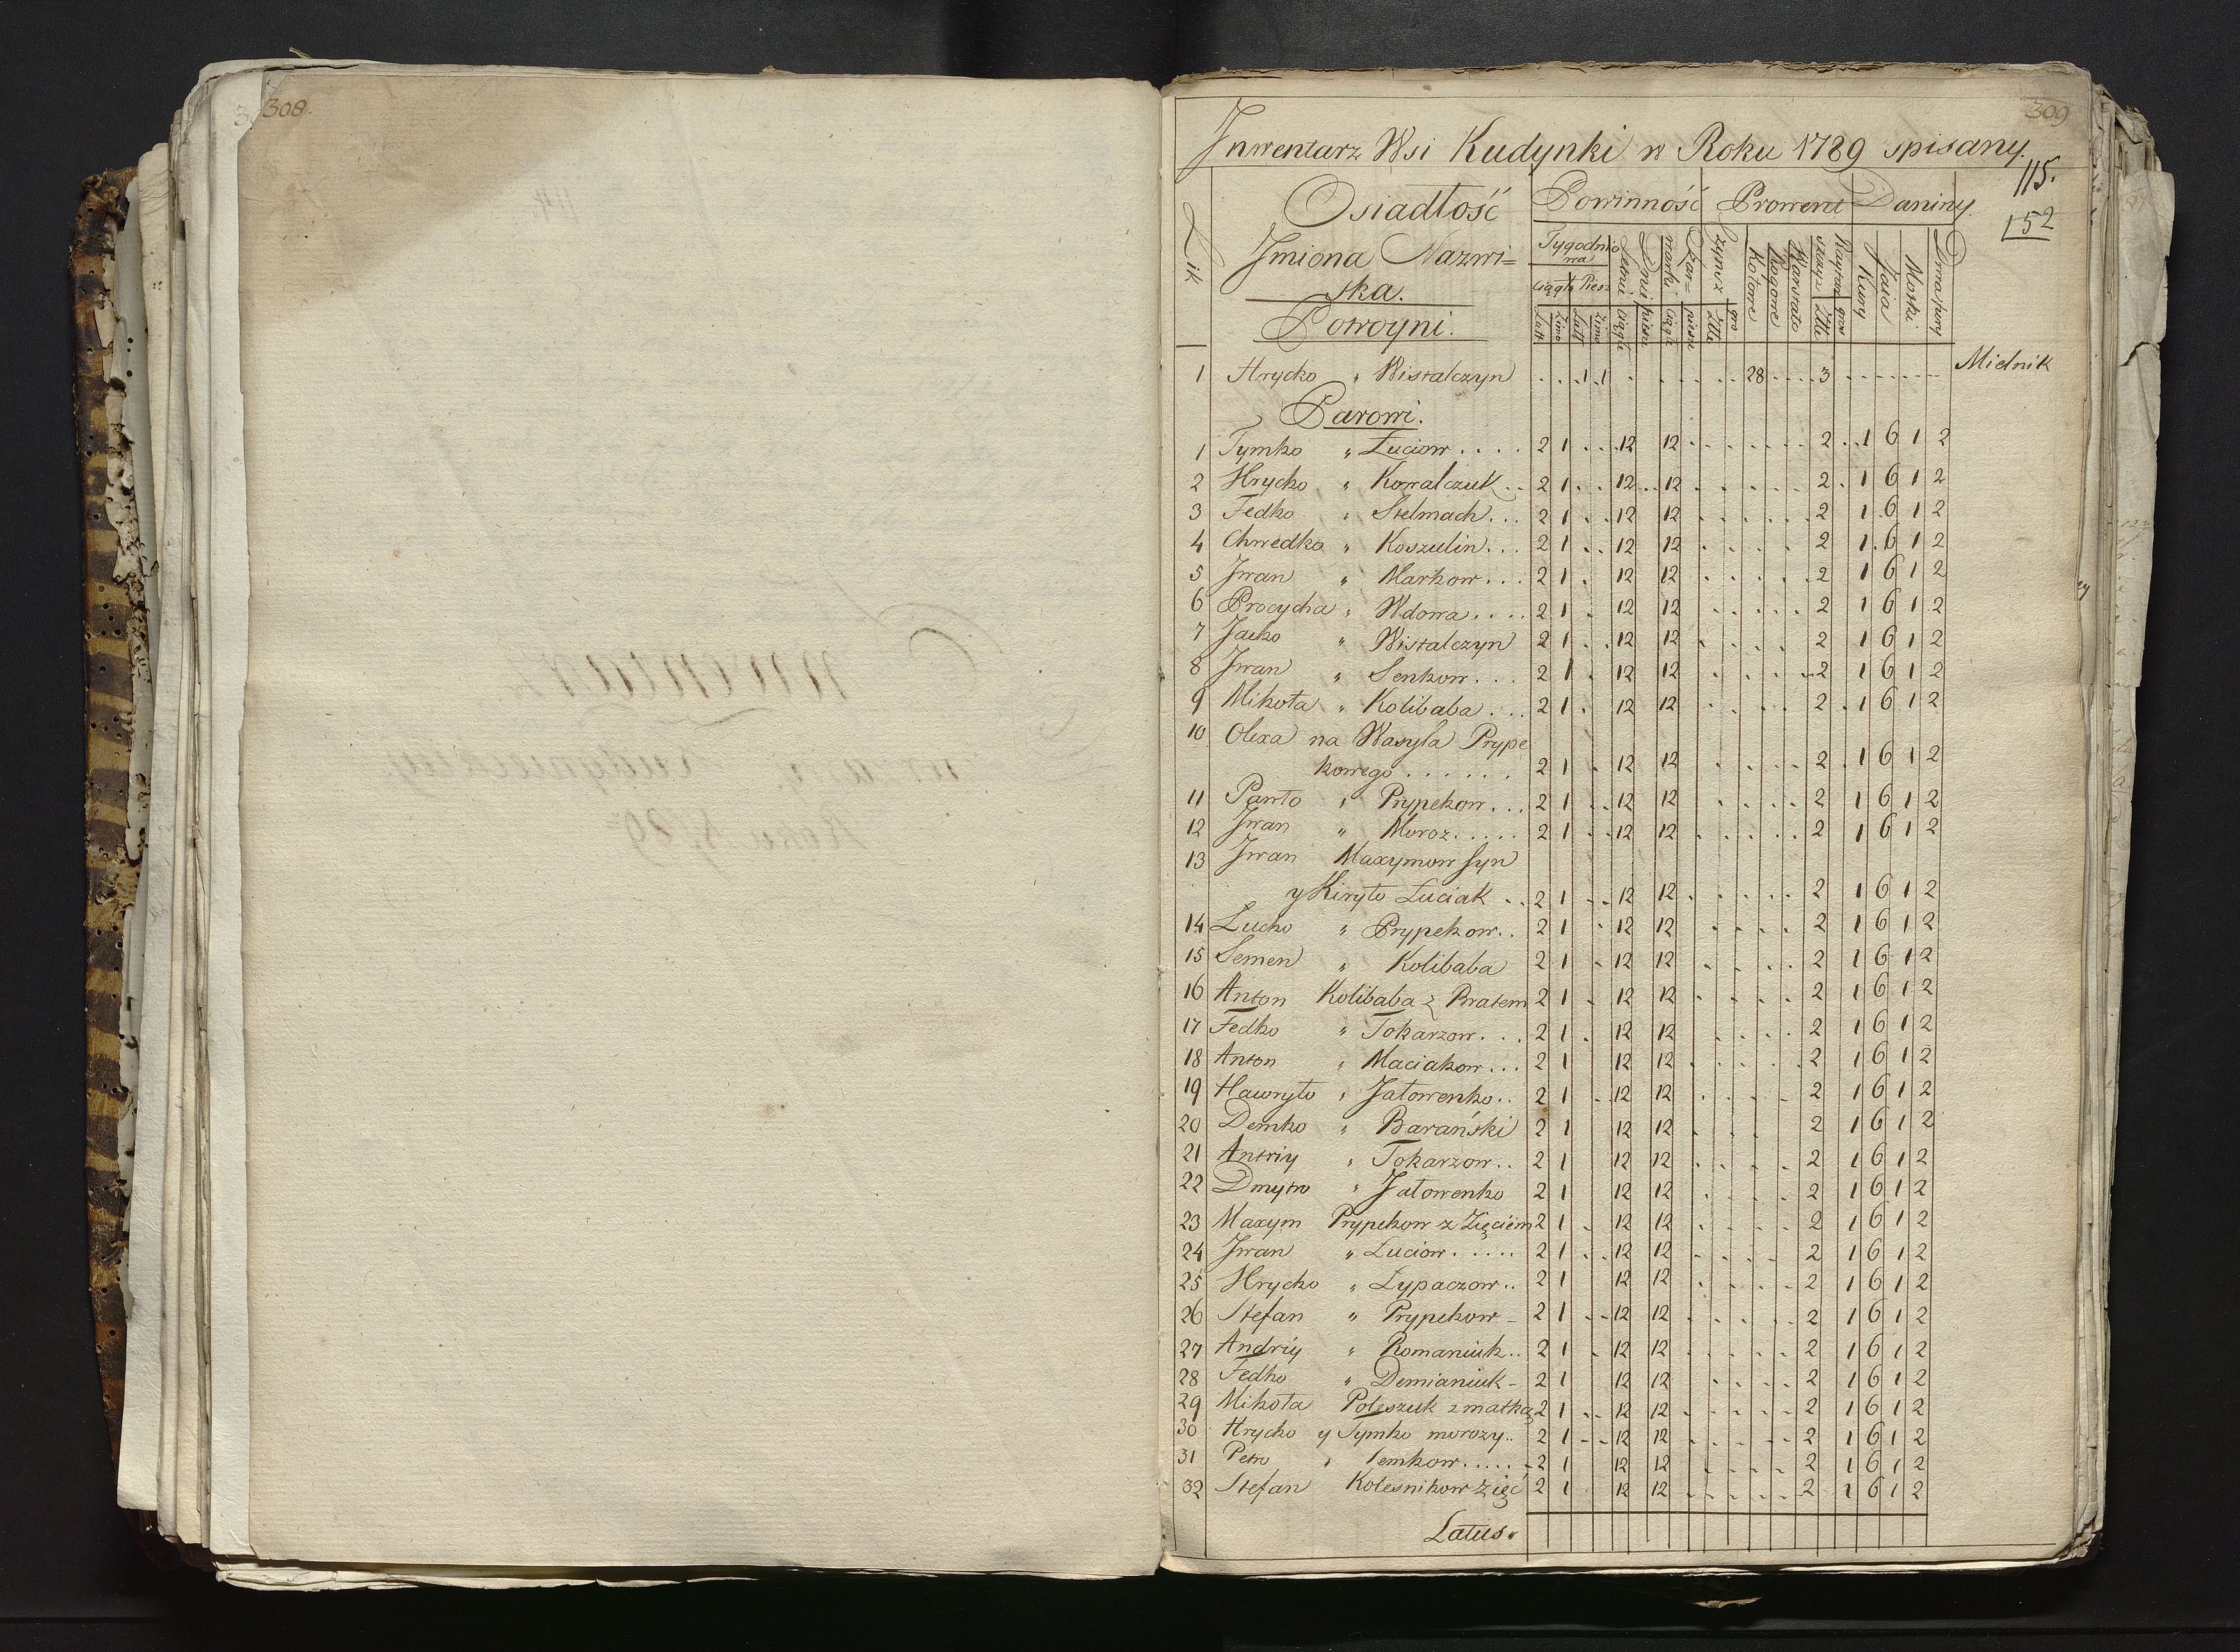 308.
309
Inwentarz Wsi Kudynki w Roku 1789 spisany.
115.
152
Lik
Osiadłość
Imiona Nazwi=
ska.
Powinność Prowent Daniny
Tygodnio
wa
ciągła Piesz
Lato Zimo Lato Zimo
Letnie Dnei
ciągłe piesze
Szar=
warki
ciągłe piesze
Czynsz
Złłe gro
Kołowe
Rogowe
Złłe gros
Kury
Jaia
Motki
Potroyni.
1 Hrycko " Wistalczyn . . . 1 1 . . . . . . 28 . . . . 3 . . . . . . Mielnik
Parowi.
1 Tymko " Luciow . . . . 2 1 . . . 12 12 . . . . . . . 2 . . 1 6 1 2
2 Hrycko " Kowalczuk . . 2 1 . . 12 . . 12 . . . . . . 2 . 1 6 1 2
3 Fedko " Stelmach . . . 2 1 . . 12 12 . . . . . . 2 1 . 6 1 2
4 Chwedko " Koszulin . . . 2 1 . . 12 12 . . . . 2 1 . 6 1 2
5 Iwan " Markow . . . 2 1 . 12 12 . . . . . 2 1 6 1 2
6 Procycha " Wdowa . . . . 2 1 . 12 12 . . . . . 2 1 6 1 2
7 Jacko " Wistalczyn 2 1 . . 12 12 . . . . . 2 1 6 1 2
8 Iwan " Senkow . . . 2 1 . 12 12 . . . . . 2 1 6 1 2
9 Mikoła " Kolibaba . . . 2 1 . 12 12 . . . . 2 . 1 6 1 2
10 Olexa na Wasyla Prype
kowego . . . . . . 2 1 . 12 12 . . . . 2 . 1 6 1 2
11 Pawło " Prypekow . . . 2 1 . . 12 12 . . . . 2 1 6 1 2
12 Iwan " Moroz . . . . . 2 1 . . 12 12 . . . . . 2 1 6 1 2
13 Iwan Maxymow syn
y Kiryło Luciak . . 2 1 . . 12 12 . . . . . 2 1 6 1 2
14 Lucko " Prypekow . . 2 1 . 12 12 . . . . 2 1 6 1 2
15 Semen " Kolibaba 2 1 . 12 12 . . . . 2 1 6 1 2
16 Anton Kolibaba z Bratem 2 1 . 12 12 . . . . 2 1 6 1 2
17 Fedko " Tokarzow . . . 2 1 . 12 12 . . . . 2 1 6 1 2
18 Anton " Maciakow . . . 2 1 12 12 . . . . . 2 1 6 1 2
19 Hawryło " Jałowenko . . 2 1 . 12 12 . . . . 2 1 6 1 2
20 Demko " Barański 2 1 12 12 . . . 2 1 6 1 2
21 Antriy " Tokarzow . . 2 1 12 12 . . . . 2 1 6 1 2
22 Dmytro " Jałowenko 2 1 12 12 . . . . 2 1 6 1 2
23 Maxym Prypekow z Zięciem 2 1 . 12 12 . . . . 2 1 6 1 2
24 Iwan " Luciow . . . . . 2 1 . . 12 12 . . . . 2 1 6 1 2
25 Hrycko " Lypaczow . . 2 1 12 12 . . . . 2 1 6 1 2
26 Stefan " Prypekow - 2 1 . . 12 12 . . . . . 2 1 6 1 2
27 Andriy " Romaniuk . . 2 1 . 12 12 . . . . . 2 1 6 1 2
28 Fedko " Demianiuk - 2 1 12 12 . . . . 2 1 6 1 2
29 Mikoła Poleszuk z matką 2 1 . . 12 12 . . . . . 2 1 6 1 2
30 Hrycko y Tymko morozy . . 2 1 . . 12 12 . . . . . 2 1 6 1 2
31 Petro " Semkow . . . . . 2 1 12 12 . . . . 2 1 6 1 2
32 Stefan Kolesnikow Zięć 2 1 12 12 . . . . . 2 1 6 1 2
Latus.